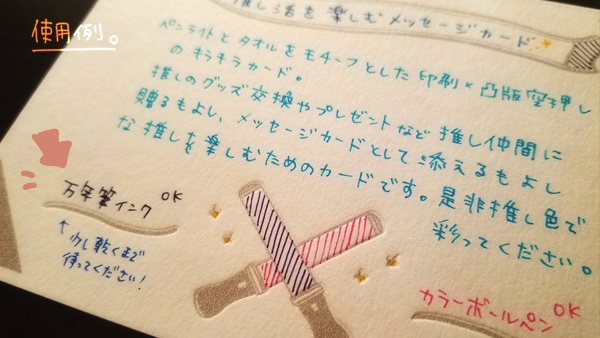 使用例。
推し活を楽しむメッセージカード
ペンライトとタオルをモチーフとした印刷×凸版空押し
のキラキラカード。
推しのグッズ交換やプレゼントなど推し仲間に
贈るもよし、メッセージカードとして添えるもよし
な推しを楽しむためのカードです。是非推し色で
彩ってください。
万年筆インク OK
↑少し乾くまで
待ってください!
カラーボールペン OK